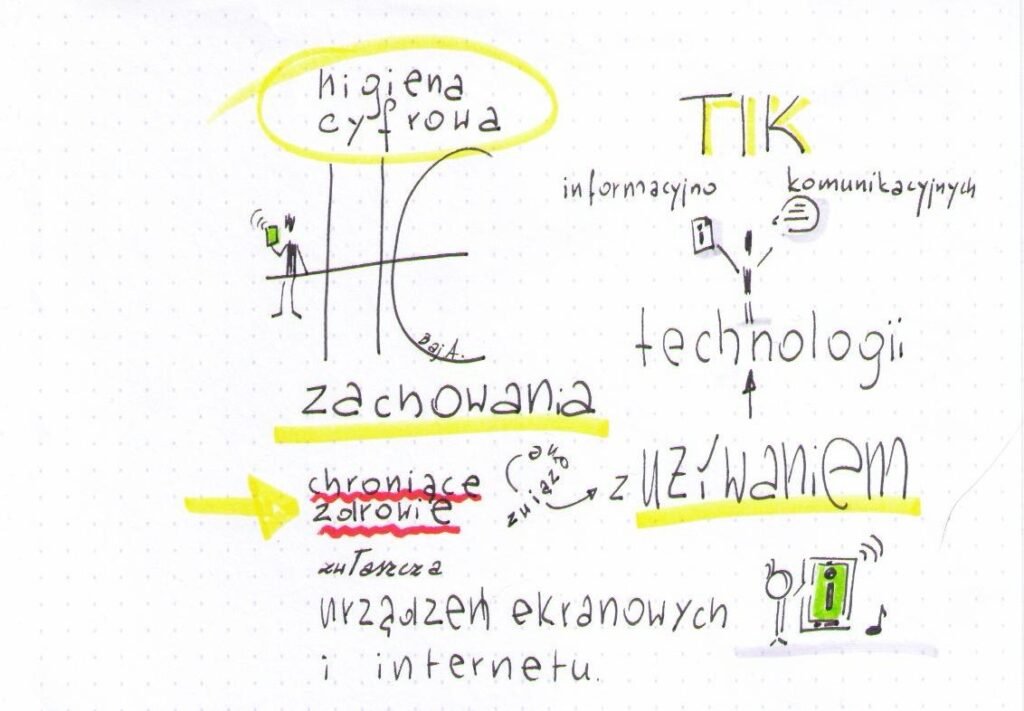 higiena
cyfrowa
HC
Baj A.
zachowania
chroniące
zdrowie
z używaniem
TIK
informacyjno komunikacyjnych
i
technologii
zwłaszcza
urządzeń ekranowych
i internetu.
i